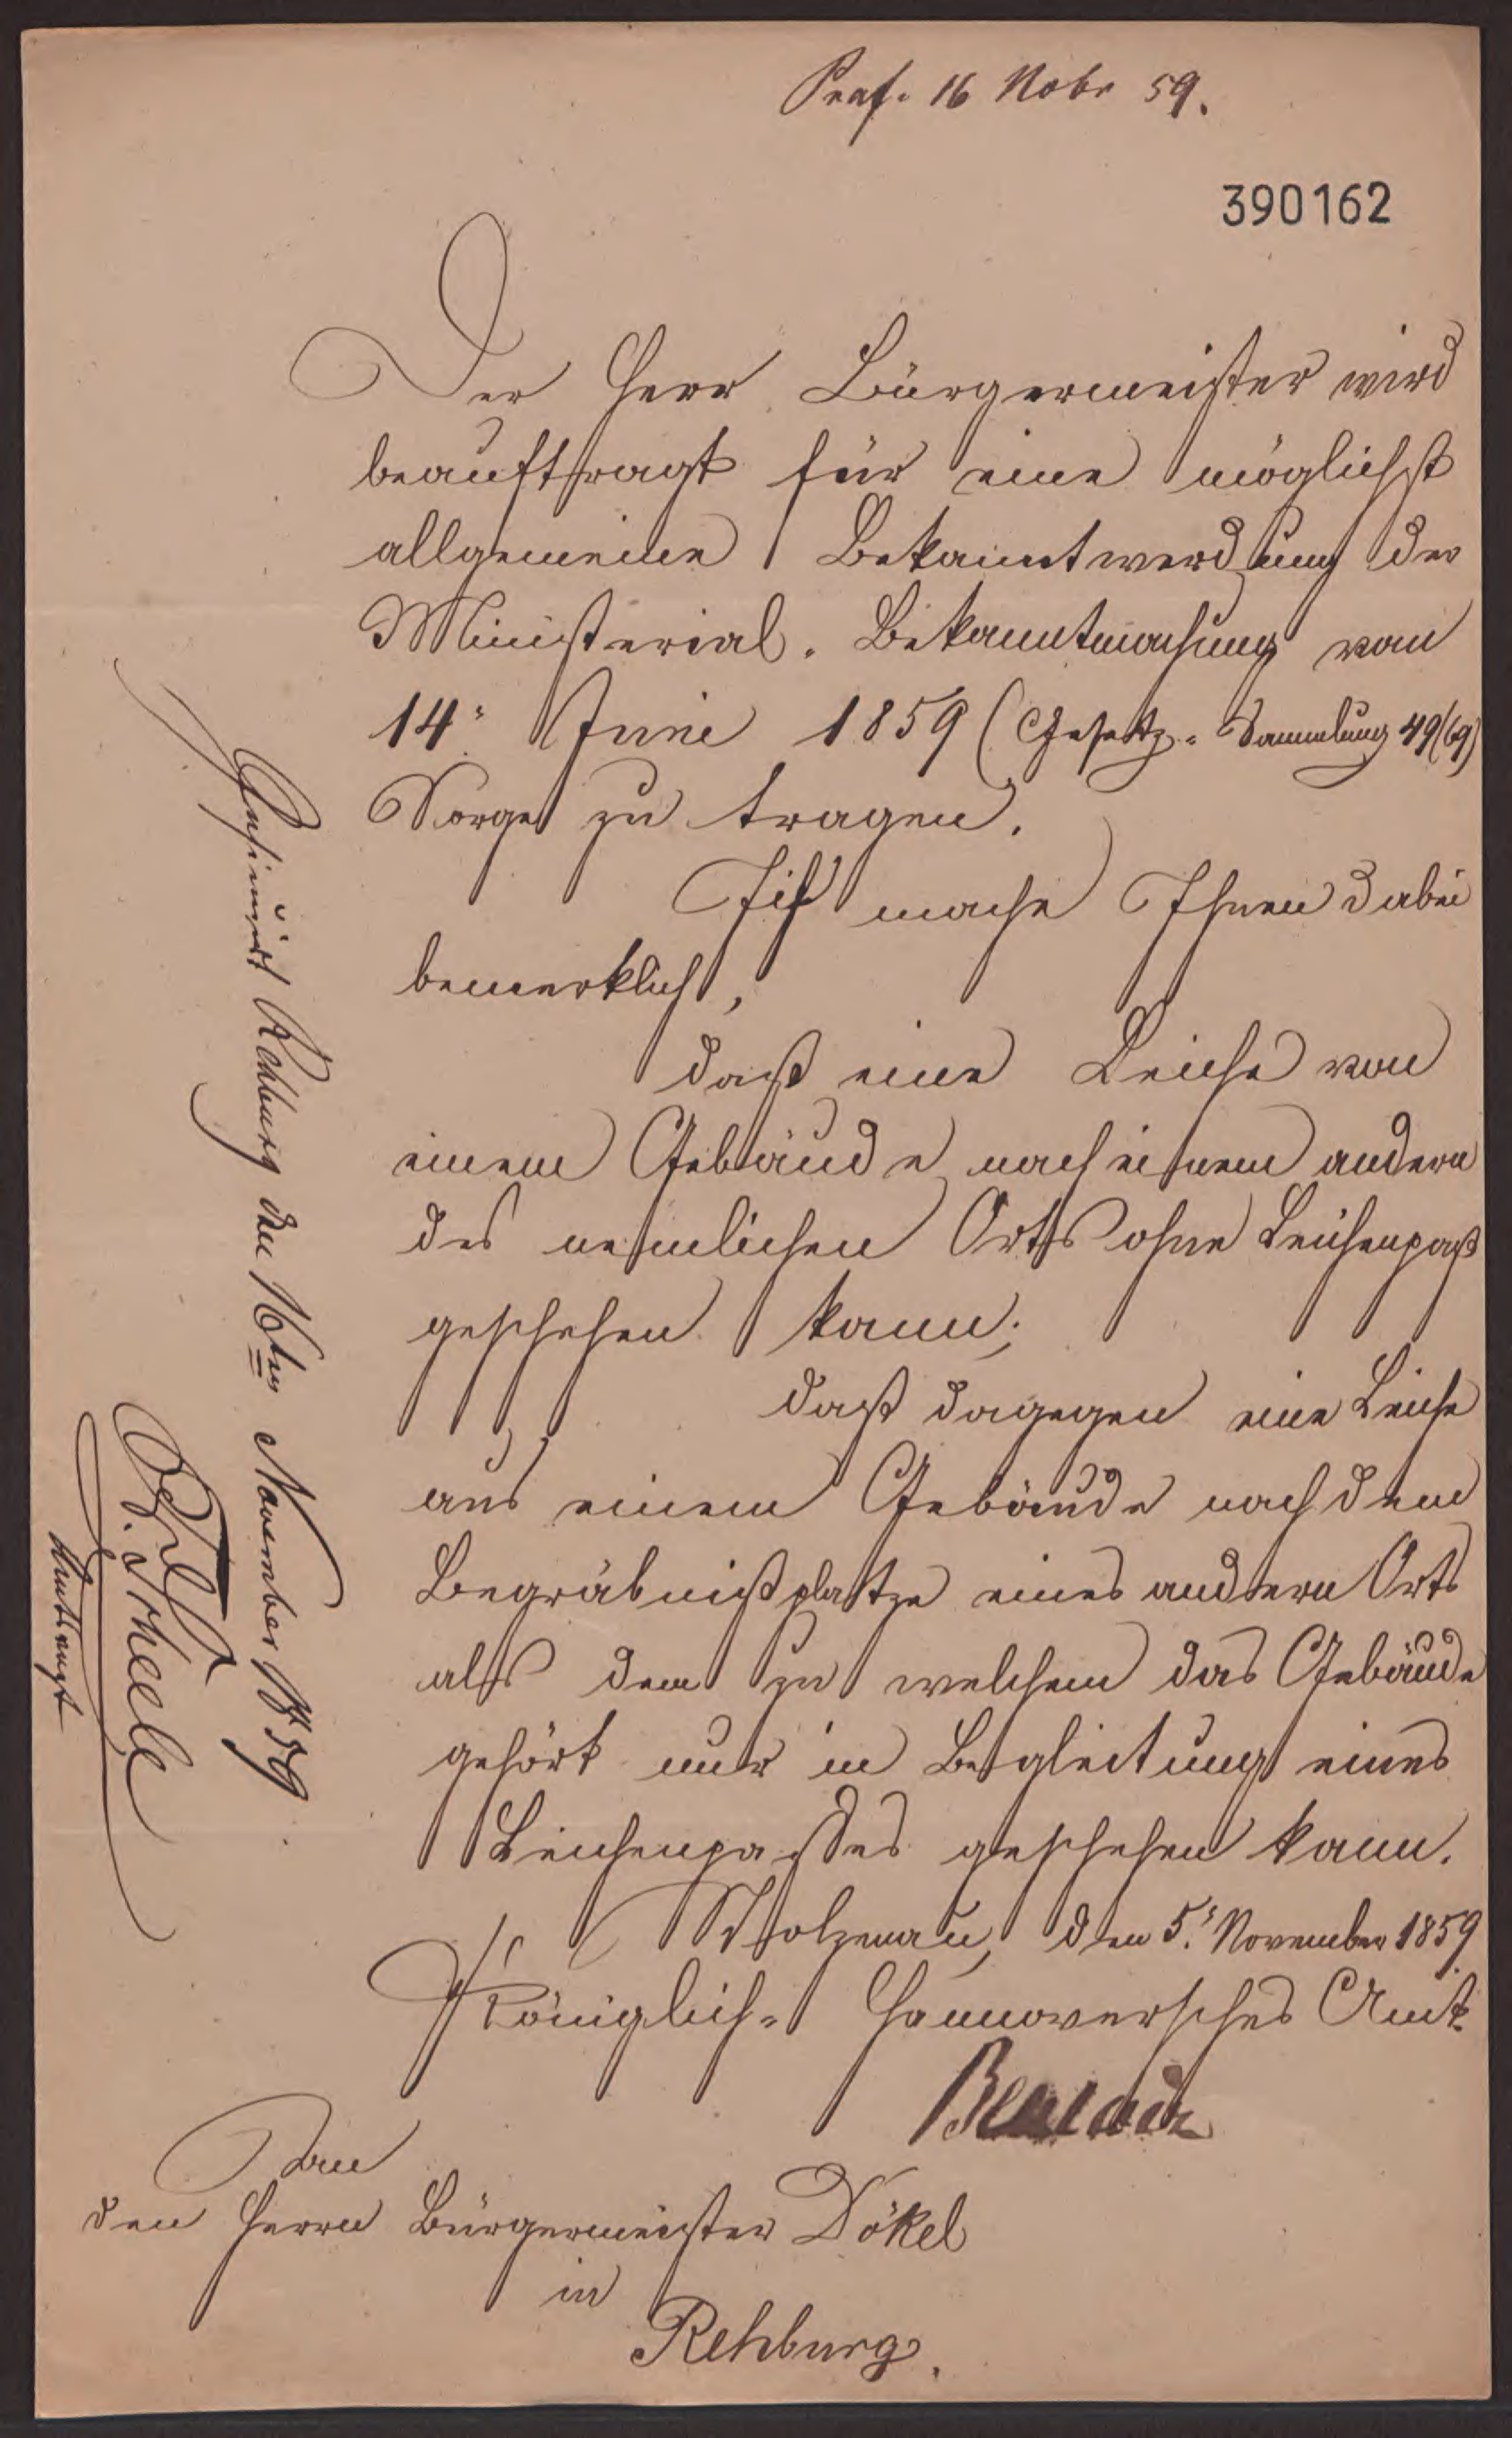 Praes. 16 Nobr 59.
390162
Der Herr Bürgermeister wird
beauftragt für eine möglichst
allgemeine Bekanntwerdung der
Ministerial-Bekanntmachung vom
14. Juni 1859 (Gesetz-Sammlung 49/69)
Sorge zu tragen.
Ich mache Ihnen dabei
bemerklich,
daß eine Leiche von
einem Gebäude nach einem andern
des nemlichen Orts ohne Leichenpaß
geschehen kann;
daß dagegen eine Leiche
aus einem Gebäude nach dem
Begräbnißplatze eines andern Orts
als dem zu welchem das Gebäude
gehört nur in Begleitung eines
Leichenpasses geschehen kann.
Stolzenau, den 5. November 1859.
Königlich-Hannoversches Amt.
An
den Herrn Bürgermeister Dökel
in
Rehburg.
Rehburg den 16ten November 1859
Amtsvogt